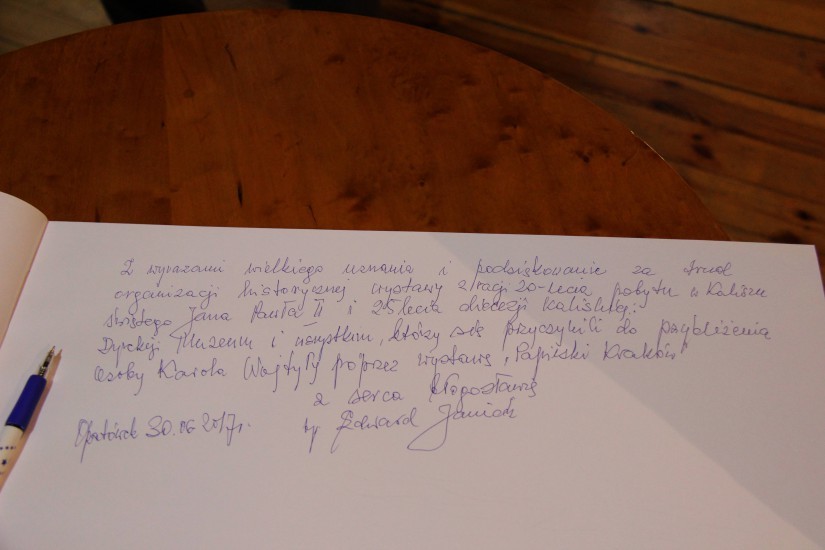 Z wyrazami wielkiego uznania i podziękowanie za trud
organizacji historycznej wystawy z racji 20-lecia pobytu w Kaliszu
świętego Jana Pawła II i 25 lecia diecezji kaliskiej.
Dyrekcji Muzeum i wszystkim, którzy się przyczynili do przybliżenia
Osoby Karola Wojtyły poprzez wystawę "Papieski Kraków"
z serca błogosławię
Opatówek 30.06 2017r. bp Edward Janiak